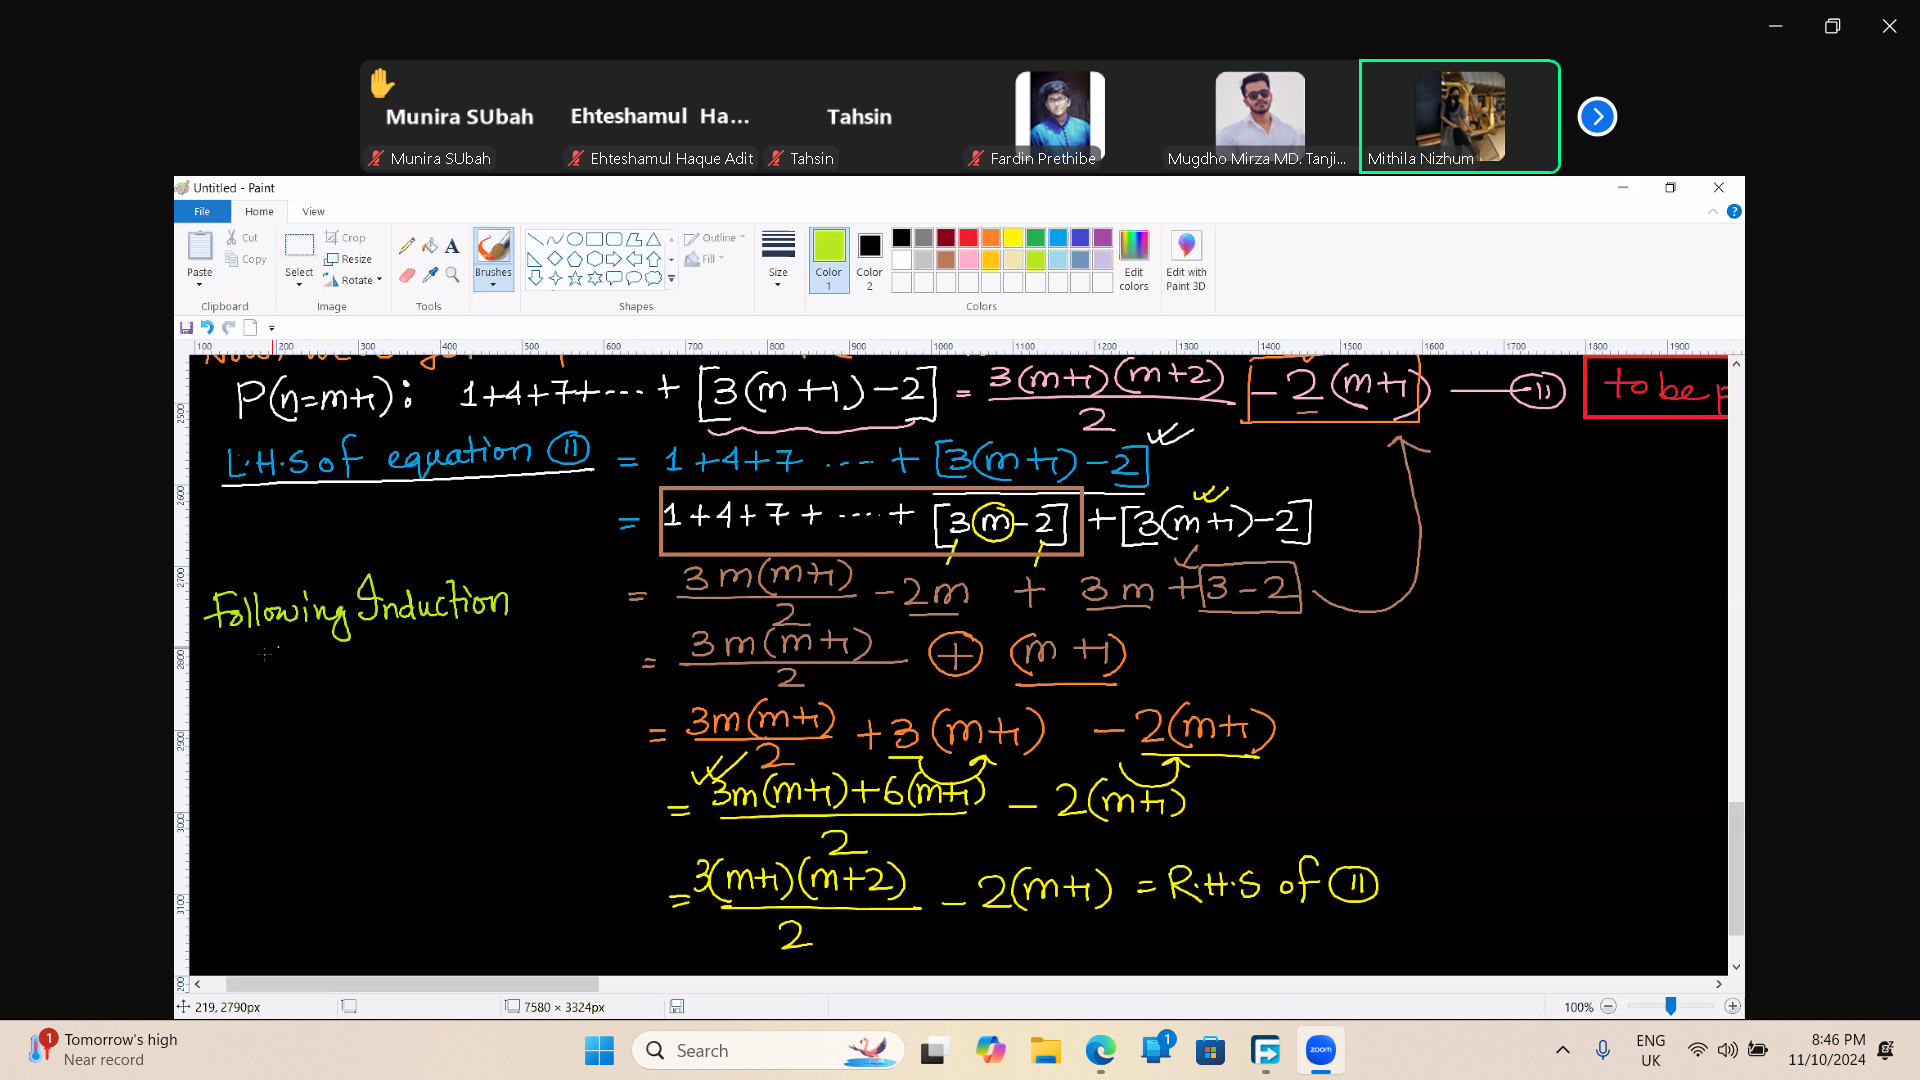 Munira SUbah
Ehteshamul Ha...
Tahsin
Munira SUbah
Ehteshamul Haque Adit
Tahsin
Fardin Prethibe
Mugdho Mirza MD. Tanji...
Mithila Nizhum
Untitled - Paint
File Home View
Paste Cut Copy Clipboard
Select Crop Resize Rotate Image
Tools
Brushes
Outline Fill Shapes
Size
Color 1 Color 2 Edit colors Colors
Edit with Paint 3D
100 200 300 400 500 600 700 800 900 1000 1100 1200 1300 1400 1500 1600 1700 1800 1900
P(n=m+1): 1+4+7+.... + [3(m+1)-2] = 3(m+1)(m+2)/2 -2(m+1) — (11) to be p
L.H.S of equation (11) = 1+4+7 .... + [3(m+1)-2]
= 1+4+7+ .... + [3m-2] + [3(m+1)-2]
Following Induction = 3m(m+1)/2 - 2m + 3m + 3-2
= 3m(m+1)/2 + (m+1)
= 3m(m+1)/2 + 3(m+1) - 2(m+1)
= 3m(m+1)+6(m+1)/2 - 2(m+1)
= 3(m+1)(m+2)/2 - 2(m+1) = R.H.S of (11)
2500
2600
2700
2800
2900
3000
3100
219, 2790px 7580 × 3324px 100%
1 Tomorrow's high
Near record
Search
1
zoom
ENG
UK
8:46 PM
11/10/2024